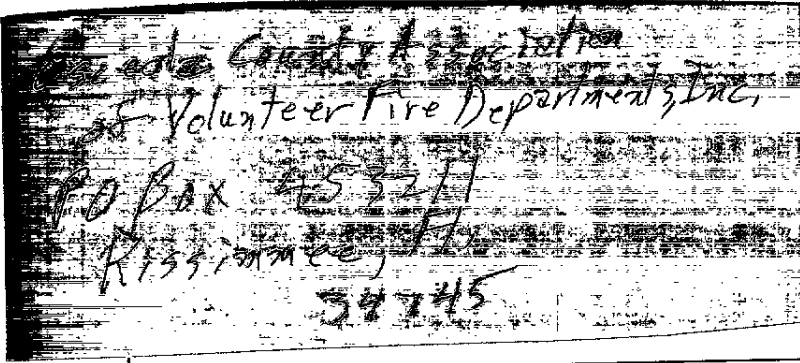 Osceola County Association
of Volunteer Fire Departments, Inc.
PO Box 453211
Kissimmee, Fl,
34745